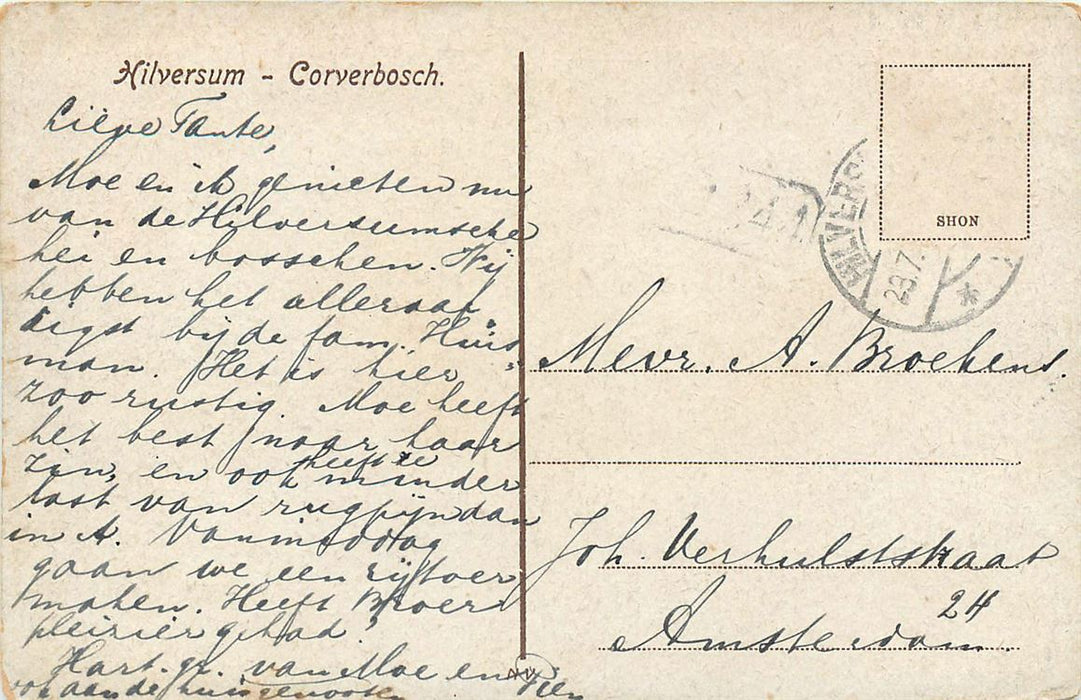 Hilversum - Corverbosch.
Lieve Tante,
Moe en ik genieten nu
van de Hilversumsche
hei en bosschen. Wij
hebben het alleraar
digst bij de fam. Huis
man. Het is hier
zoo rustig. Moe heeft
het best naar haar
zin, en ook heeft ze minder
last van rugpijn dan
in A. Vanmiddag
gaan we een rijtoer
maken. Heeft Broer
pleizier gehad?
Hart. gr. van Moe en
ook aan de huisgenooten
SHON
HILVERS
29.7.
Mevr. A. Broekens.
Joh. Verhulststraat
24
Amsterdam.